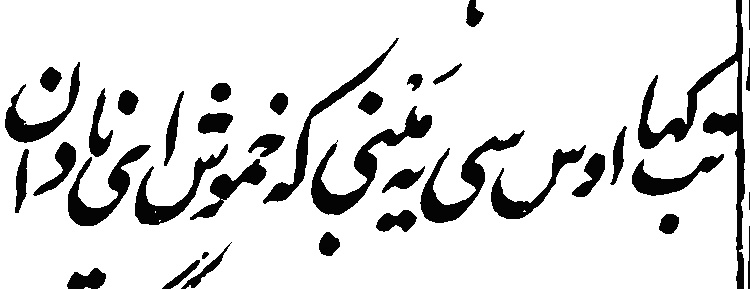 تب کہا اوس سی یہ مَیںنی کہ خموش ای نادان